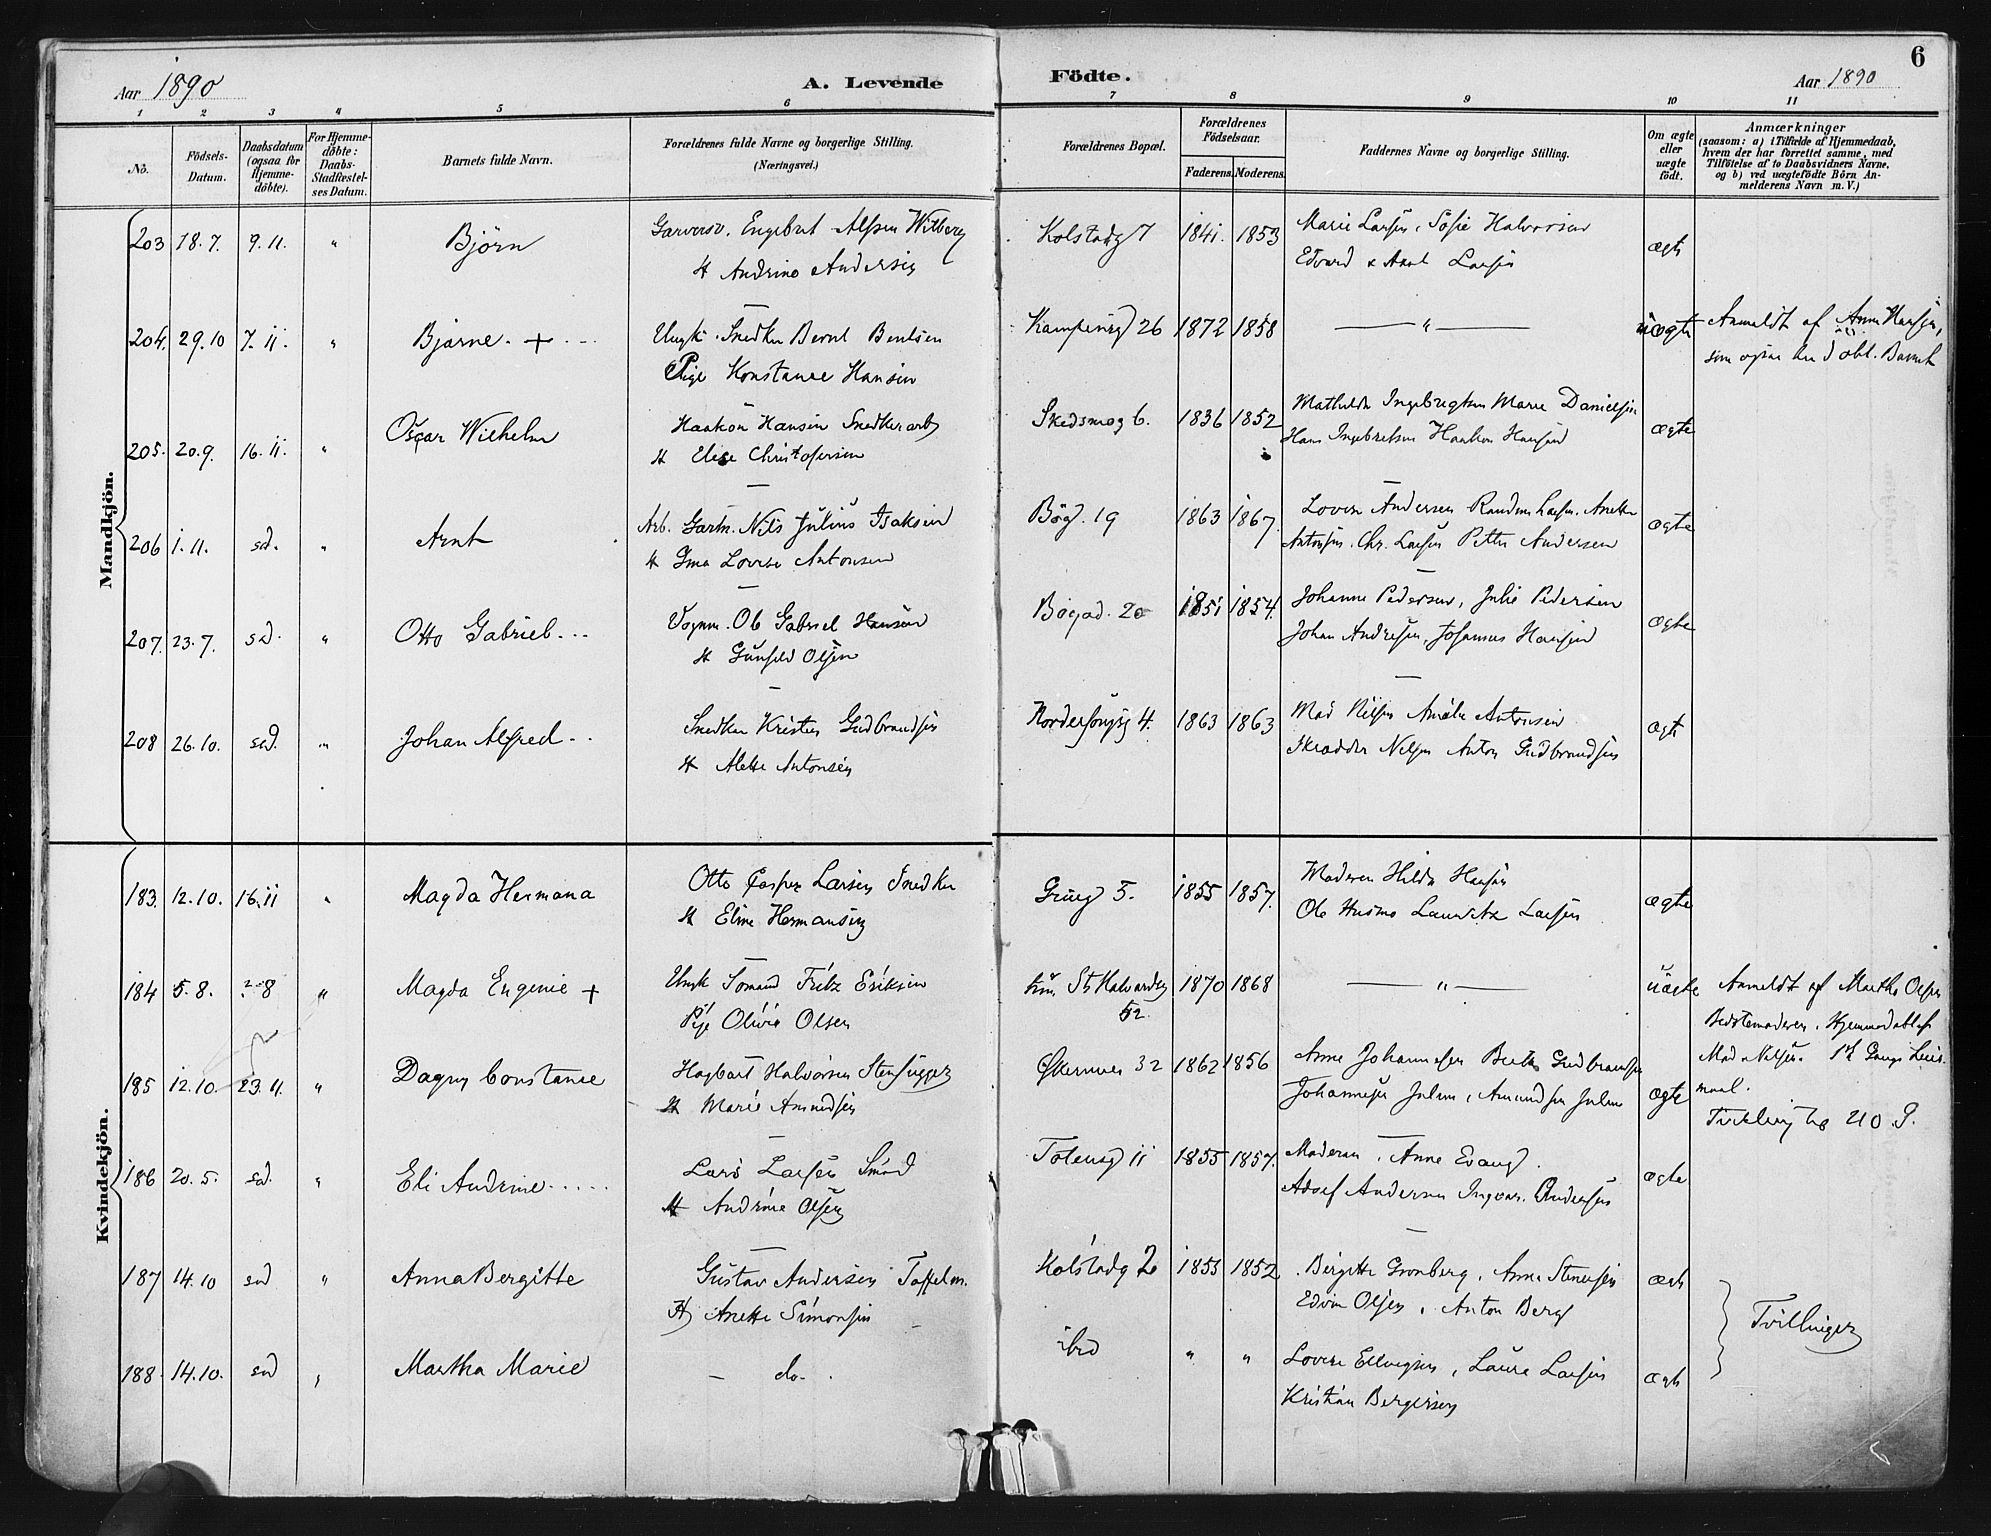 6
Aar 1890
A. Levende
Födte.
Aar 1890
1 2 3 4 5 6 7 8 9 10 11
No.
Födsels-Datum.
Daabsdatum (ogsaa for Hjemme-döbte).
For Hjemme-döbte: Daabs-Stadfestel-ses Datum.
Barnets fulde Navn.
Forældrenes fulde Navne og borgerlige Stilling.
(Næringsvei.)
Forældrenes Bopæl.
Forældrenes Födselsaar.
Faderens. Moderens.
Faddernes Navne og borgerlige Stilling.
Om ægte eller uægte födt.
Anmærkninger
(saasom: a) i Tilfælde af Hjemmedaab,
hvem der har forrettet samme, med
Tilföielse af to Daabsvidners Navne,
og b) ved uægtefödte Börn An-
melderens Navn m. V.)
Mandkjön.
203 18.7. 9.11. " Björn Garversv. Engebret Alfsen Witberg Kolstadg 7 1841. 1853 Marie Larsen, Sofie Halvorsen ægte
H Andrine Andersen Edvard & Axel Larsen
204. 29.10 7.11. " Bjarne. + Ungk. Snedker Bernt Bentsen Kampensg 26 1872 1858 — " — uægte Anmeldt af Anne Hansen,
Pige Konstance Hansen som ogsaa har döbt. Barnet
205. 20.9. 16.11. " Oscar Wilhelm Haakon Hansen Snedkerarb Skedsmog 6. 1836 1852 Mathilde Ingebrigtsen Marie Danielsen ægte
H Elise Christofersen Hans Ingebretsen Haakon Hansen
206 1.11. sd. " Arnt Arb. Gartn. Nils Julius Isaksen Bög. 19 1863 1867. Lovise Andersen Larsen. Anette ægte
H Lovise Antonsen Antonsen. Chr. Larsen Petter Andersen
207. 23.7. sd. " Otto Gabriel Vognm. Ole Gabriel Hansen Bögad. 20 1851 1854. Johanne Pedersen, Julie Pedersen ægte
H Gunhild Olsen Johan Andresen, Johannes Hansen
208 26.10. sd. " Johan Alfred Snedker Kristen Gudbrandsen 4. 1863 1863 Mad Nilsen Amalie Antonsen ægte
H Alette Antonsen Skrædder Nilsen Anton Gudbrandsen
Kvindekjön.
183. 12.10. 16.11 " Magda Hermana Otto Casper Larsen Snedker Grüng 5. 1855 1857. Moderen Hilda Hansen ægte
H Eline Hermansen Ole Husmo Lauritz Larsen
184 5.8. 8 " Magda Eugenie + Ungk Sömand Fritz Eriksen St Halvardsg 1870 1868 — " — uægte Anmeldt af Marthe Olsen
Pige Olivia Olsen 52. Bedstemoderen. Hjemmedöbt af
185 12.10. 23.11. " Dagny Constance Hagbart Halvorsen Stenhugger Økernvei 32 1862 1856 Anne Johannesen Berthe Gudbrandsen ægte Mad. Nilsen.
H Marie Amundsen Johannesen Julin, Amundsen maal.
Tvilling No 210 S.
186 20.5. sd. " Eli Andrine Lars Larsen Smed Totensg 11 1855 1857. Moderen, Anne Evang. ægte
H Andrine Olsen Adolf Andersen Ingvar. Andersen
187 14.10 sd " Anna Bergitte Gustav Andersen Taffelm. Kolstadg 2 1853 1852 Birgitte Gronberg, Anne Stenersen ægte
H Anette Simonsen Edvin Olsen, Anton Berg
188. 14.10. sd " Martha Marie — do. ibid " " Lovise Ellingsen, Laura Larsen ægte
Kristian Bergersen
Tvillinger